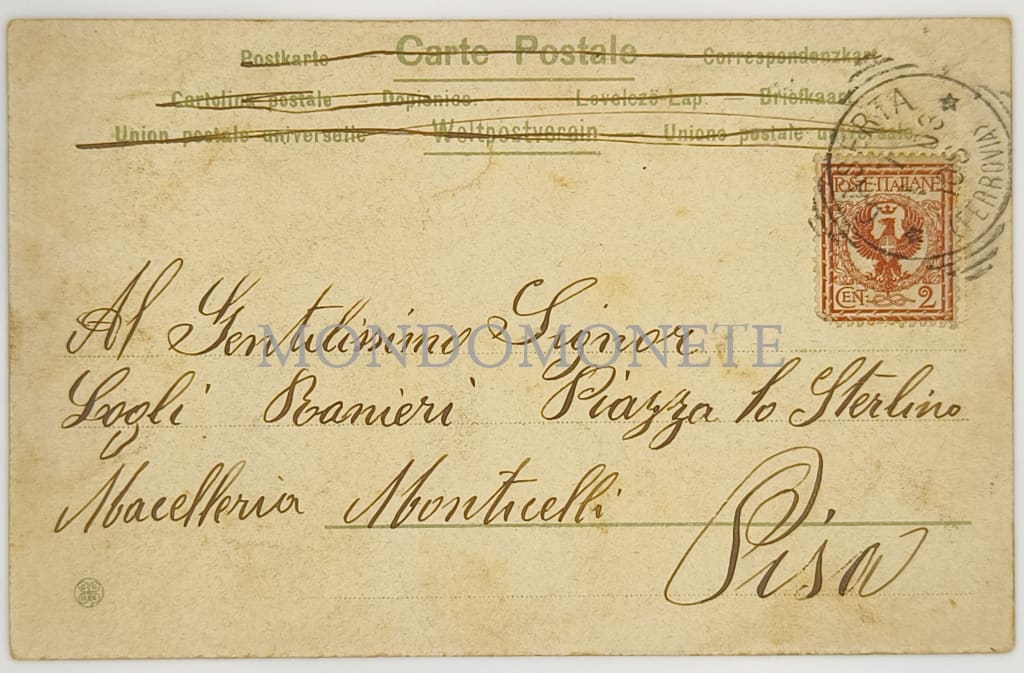 Postkarte Carte Postale Correspondenzkart
Cartoline postale – Dopisnice. Levelező-Lap. – Briefkaart
Union postale universelle Weltpostverein – Unione postale universale
POSTE·ITALIANE
CEN: 2
(FERROVIA)
Al Gentilissimo Signor
Logli Ranieri Piazza lo Sterlino
Macelleria Monticelli
Pisa
MONDOMONETE